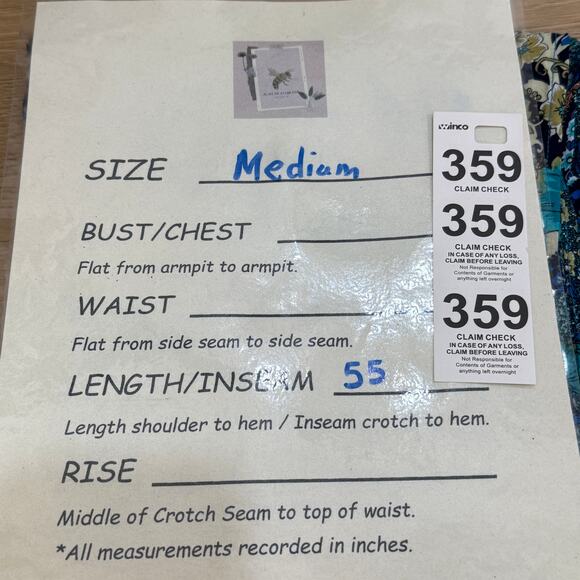 SIZE Medium
BUST/CHEST
Flat from armpit to armpit.
WAIST
Flat from side seam to side seam.
LENGTH/INSEAM 55
Length shoulder to hem / Inseam crotch to hem.
RISE
Middle of Crotch Seam to top of waist.
*All measurements recorded in inches.
winco
359
CLAIM CHECK
359
CLAIM CHECK
IN CASE OF ANY LOSS,
CLAIM BEFORE LEAVING
Not Responsible for
Contents of Garments or
anything left overnight
359
CLAIM CHECK
IN CASE OF ANY LOSS,
CLAIM BEFORE LEAVING
Not Responsible for
Contents of Garments or
anything left overnight